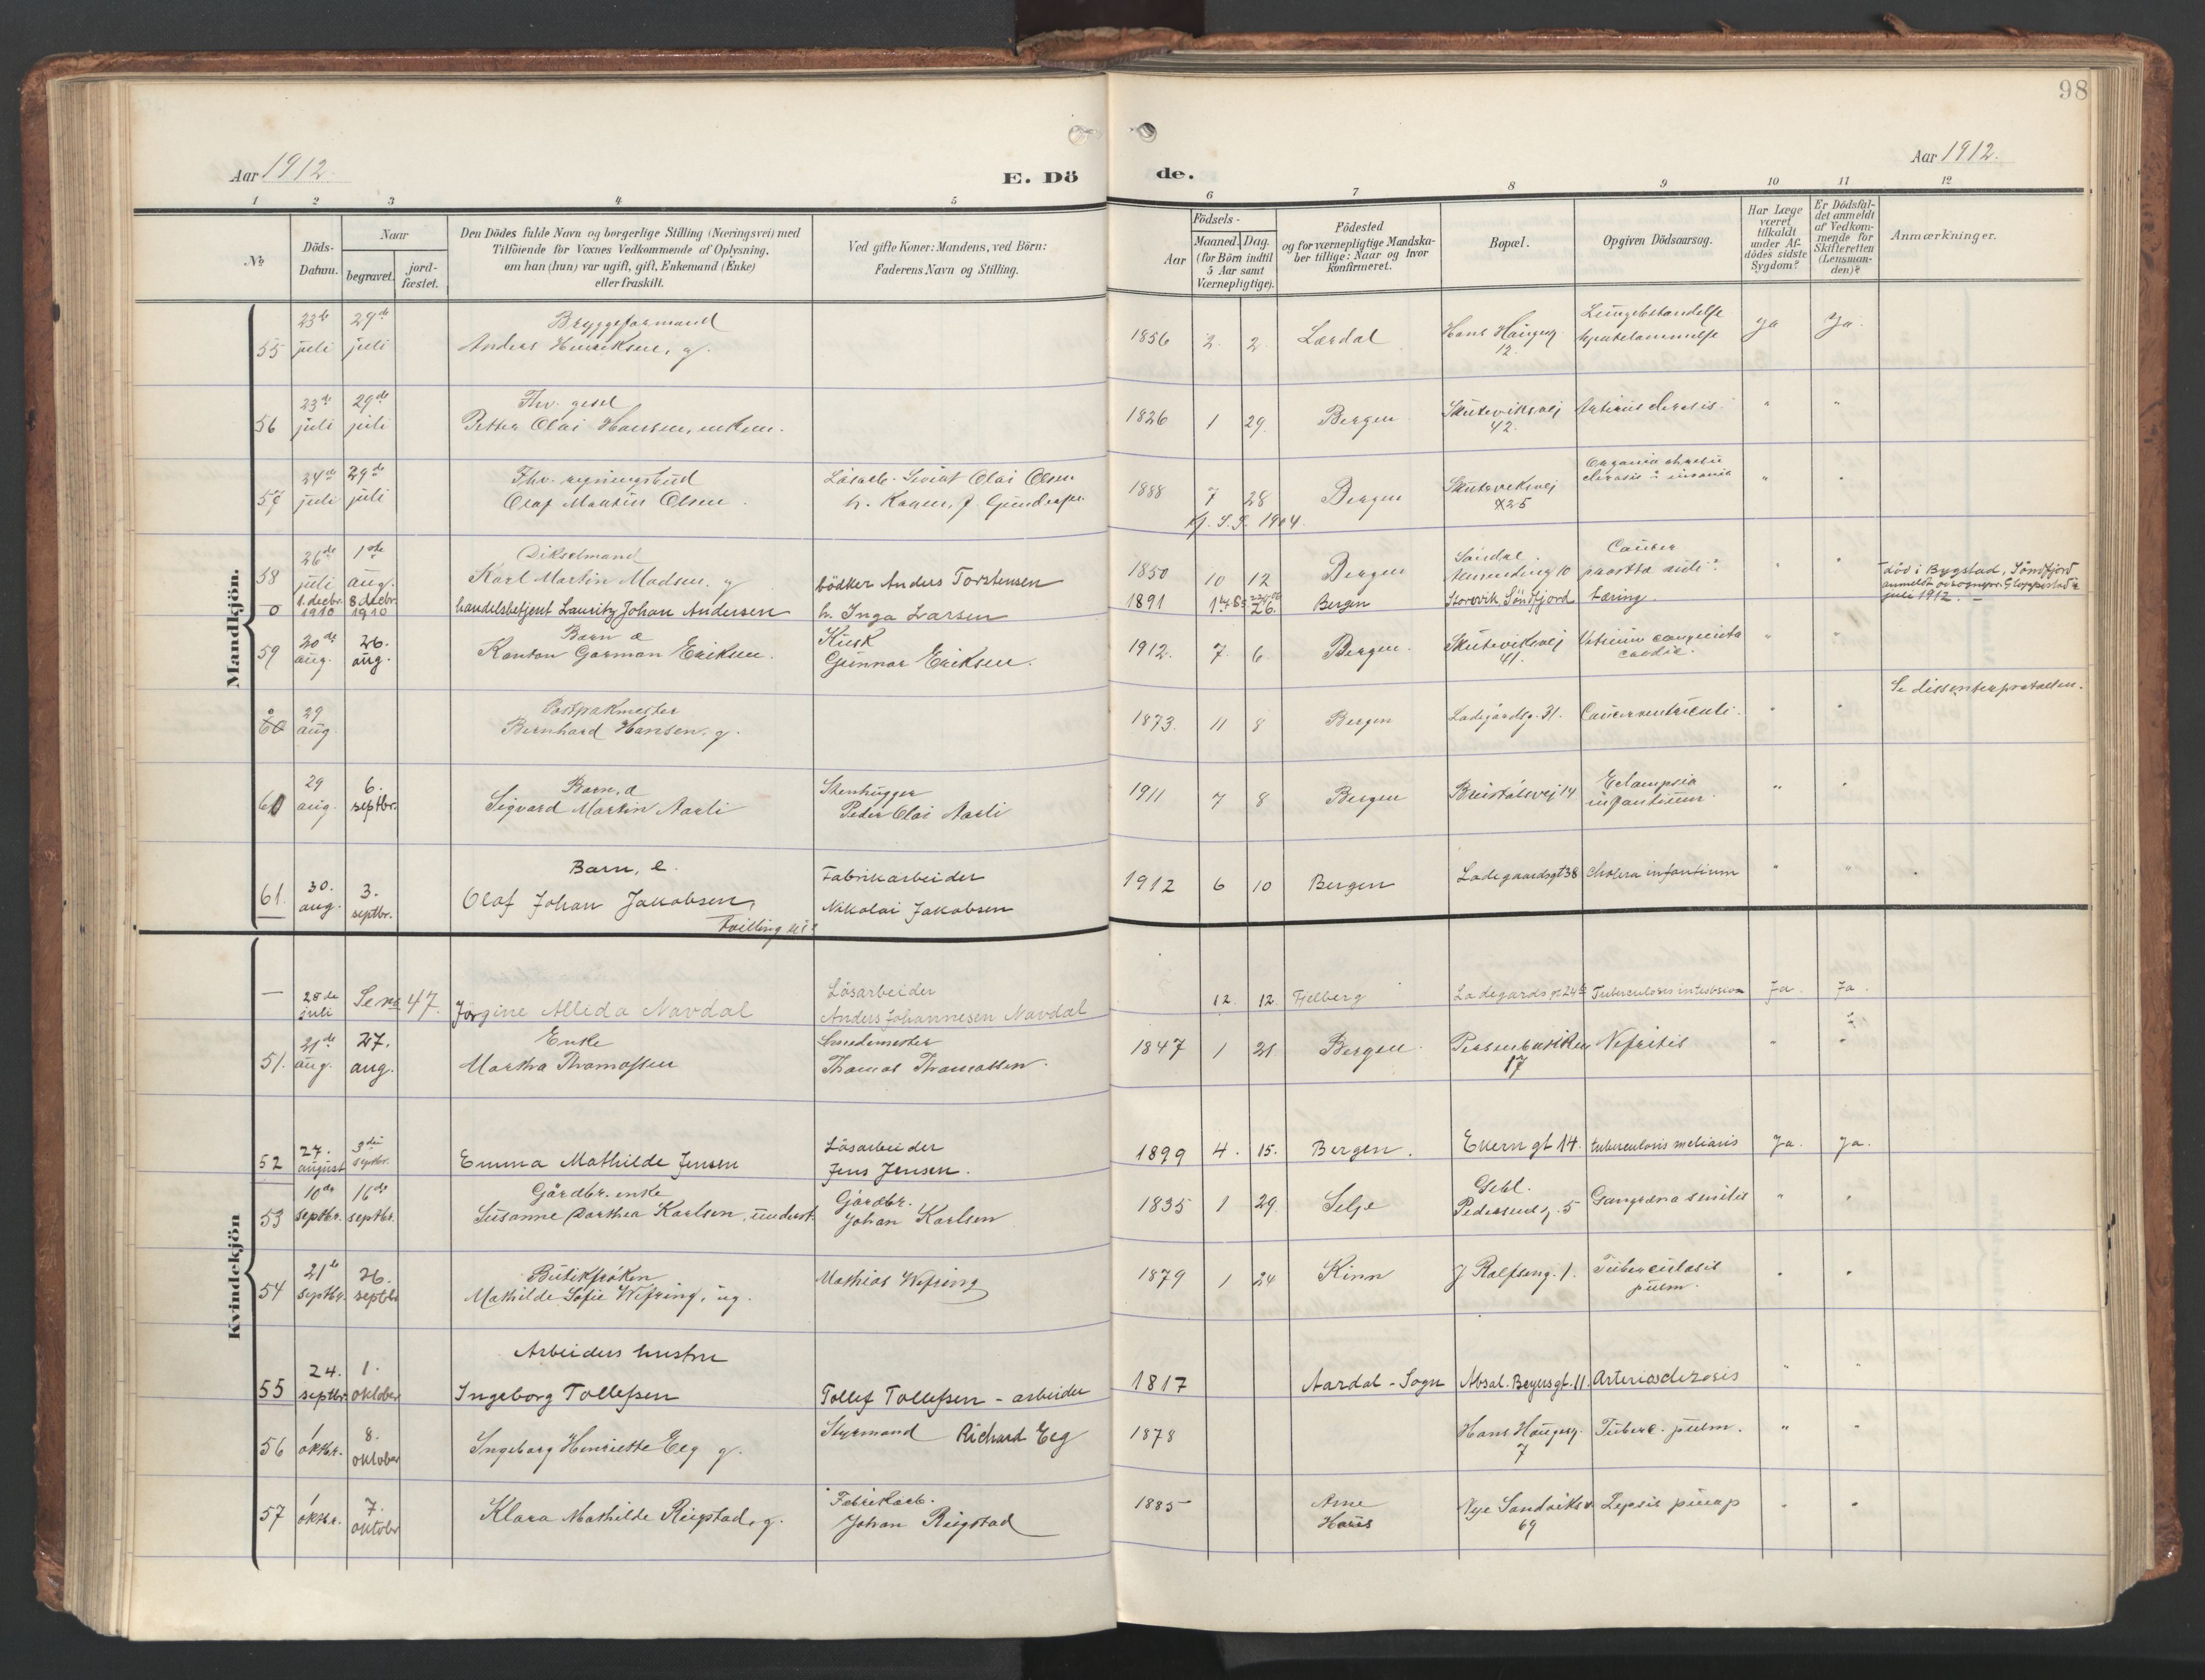 98
Aar 1912.
E. Dö
de.
Aar 1912.
1 2 3 4 5 6 7 8 9 10 11 12
No
Döds-
Datum.
Naar
begravet.
jord-
fæstet.
Den Dödes fulde Navn og borgerlige Stilling (Næringsvei) med
Tilföiende for Voxnes Vedkommende af Oplysning,
om han (hun) var ugift, gift, Enkemand (Enke)
eller fraskilt.
Ved gifte Koner: Mandens, ved Börn:
Faderens Navn og Stilling.
Födsels-
Aar
Maaned. Dag.
(for Börn indtil
5 Aar samt
Værnepligtige).
Födested
og for værnepligtige Mandska-
ber tillige: Naar og hvor
konfirmeret.
Bopæl.
Opgiven Dödsaarsag.
Har Læge
været
tilkaldt
under Af-
dödes sidste
Sygdom?
Er Dödsfal-
det anmeldt
af Vedkom-
mende for
Skifteretten
(Lensman-
den)?
Anmærkninger.
Mandkjön.
23de 29de Bryggeformand
55 juli juli Anders Henriksen, g. 1856 2. 2. Lærdal Hans Haugesg. 12. Lungebetændelse Ja Ja.
23de 29de Fhv. gesel
56 juli juli Petter Olai Hansen, enkem. 1826 1 29. Bergen Skuteviksvej 42. " "
24de 29de Fhv. Olai Olsen
57 juli juli Olaf Martin Olsen 1888 7 28 Bergen Skuteviksvej 25 " "
1904.
26de 1ste
58 juli aug. Karl Martin Madsen. g 1850 10 12 Bergen Cancer " "
bödker Anders Torstensen
0 1. decbr. 1910 8 decbr. 1910 handelsbetjent Lauritz Johan Andersen h. Inga Larsen 1891 26. Bergen Storevik, Söndfjord tæring. död i Bygstad, Söndfjord
juli 1912. –
20de 26. Barn æ Kusk
59 aug. aug. Garman Eriksen. Gunnar Eriksen. 1912. 7. 6. Bergen. Skuteviksvej 41. " "
29 Postpakmester
aug. Bernhard Hansen. g. 1873. 11 8 Bergen Ladegårdsg. 31. Cancer ventriculi. " " Se dissenterprotokollen.
29 6. Barn, æ Stenhugger
60 aug. septbr. Sigvard Martin Aarli Peder Olai Aarli 1911 7 8 Bergen 14 Eclampsia infantium. " "
30. 3. Barn, e. Fabrikarbeider
61. aug. septbr. Olaf Johan Jakobsen, Nikolai Jakobsen 1912 6 10 Bergen Ladegaardsgt 38 Cholera infantium " "
Tvilling
Kvindekjön
28de Løsarbeider
– juli Se no 47. Jörgine Alleda Navdal Anders Johannesen Navdal 12. 12. Fjelberg Ladegårdsgt 24 Tuberculosis Ja. Ja.
21de 27. Enke Smedemester
51. aug. aug. Martha Thomassen Thomas Thomassen. 1847 1 21 Bergen. 17 Nefritis " "
27. 3die Løsarbeider
52 august septbr. Emma Mathilde Jensen Jens Jensen. 1899 4. 15. Bergen. Ekern gt 14. tuberculosis miliaris Ja. Ja.
10de 16de Gårdbr. enke Gårdbr.
53 septbr. septbr. Susanne Dorthea Karlsen, underst. Johan Karlsen 1835 1 29. Selje Pedersens g. 5 Gangræna senilis " "
21de 26. Butikfrøken
54 septbr. septbr Mathilde Sofie Wefring, ug. Mathias Wefring 1879 1 24 Kinn J Rolfseng. 1. Tuberculosis pulm. " "
24. 1. Arbeiders hustru
55 septbr. oktober Ingeborg Tollefsen Tollef Tollefsen – arbeider 1817 Aardal - Sogn Absal. Beyersgt. 11. Arteriosclerosis " "
1 8.
56 oktbr. oktober Ingeborg Henriette Eeg g. Styrmand Richard Eeg 1878 Hans Haugesg. 7 Tuberc. pulm. " "
1 7. Fabrikarb.
57 oktbr. oktobr Klara Mathilde Riigstad, g. Johan Riigstad 1885 Arne Haus Nye Sandviksv. 69 " "